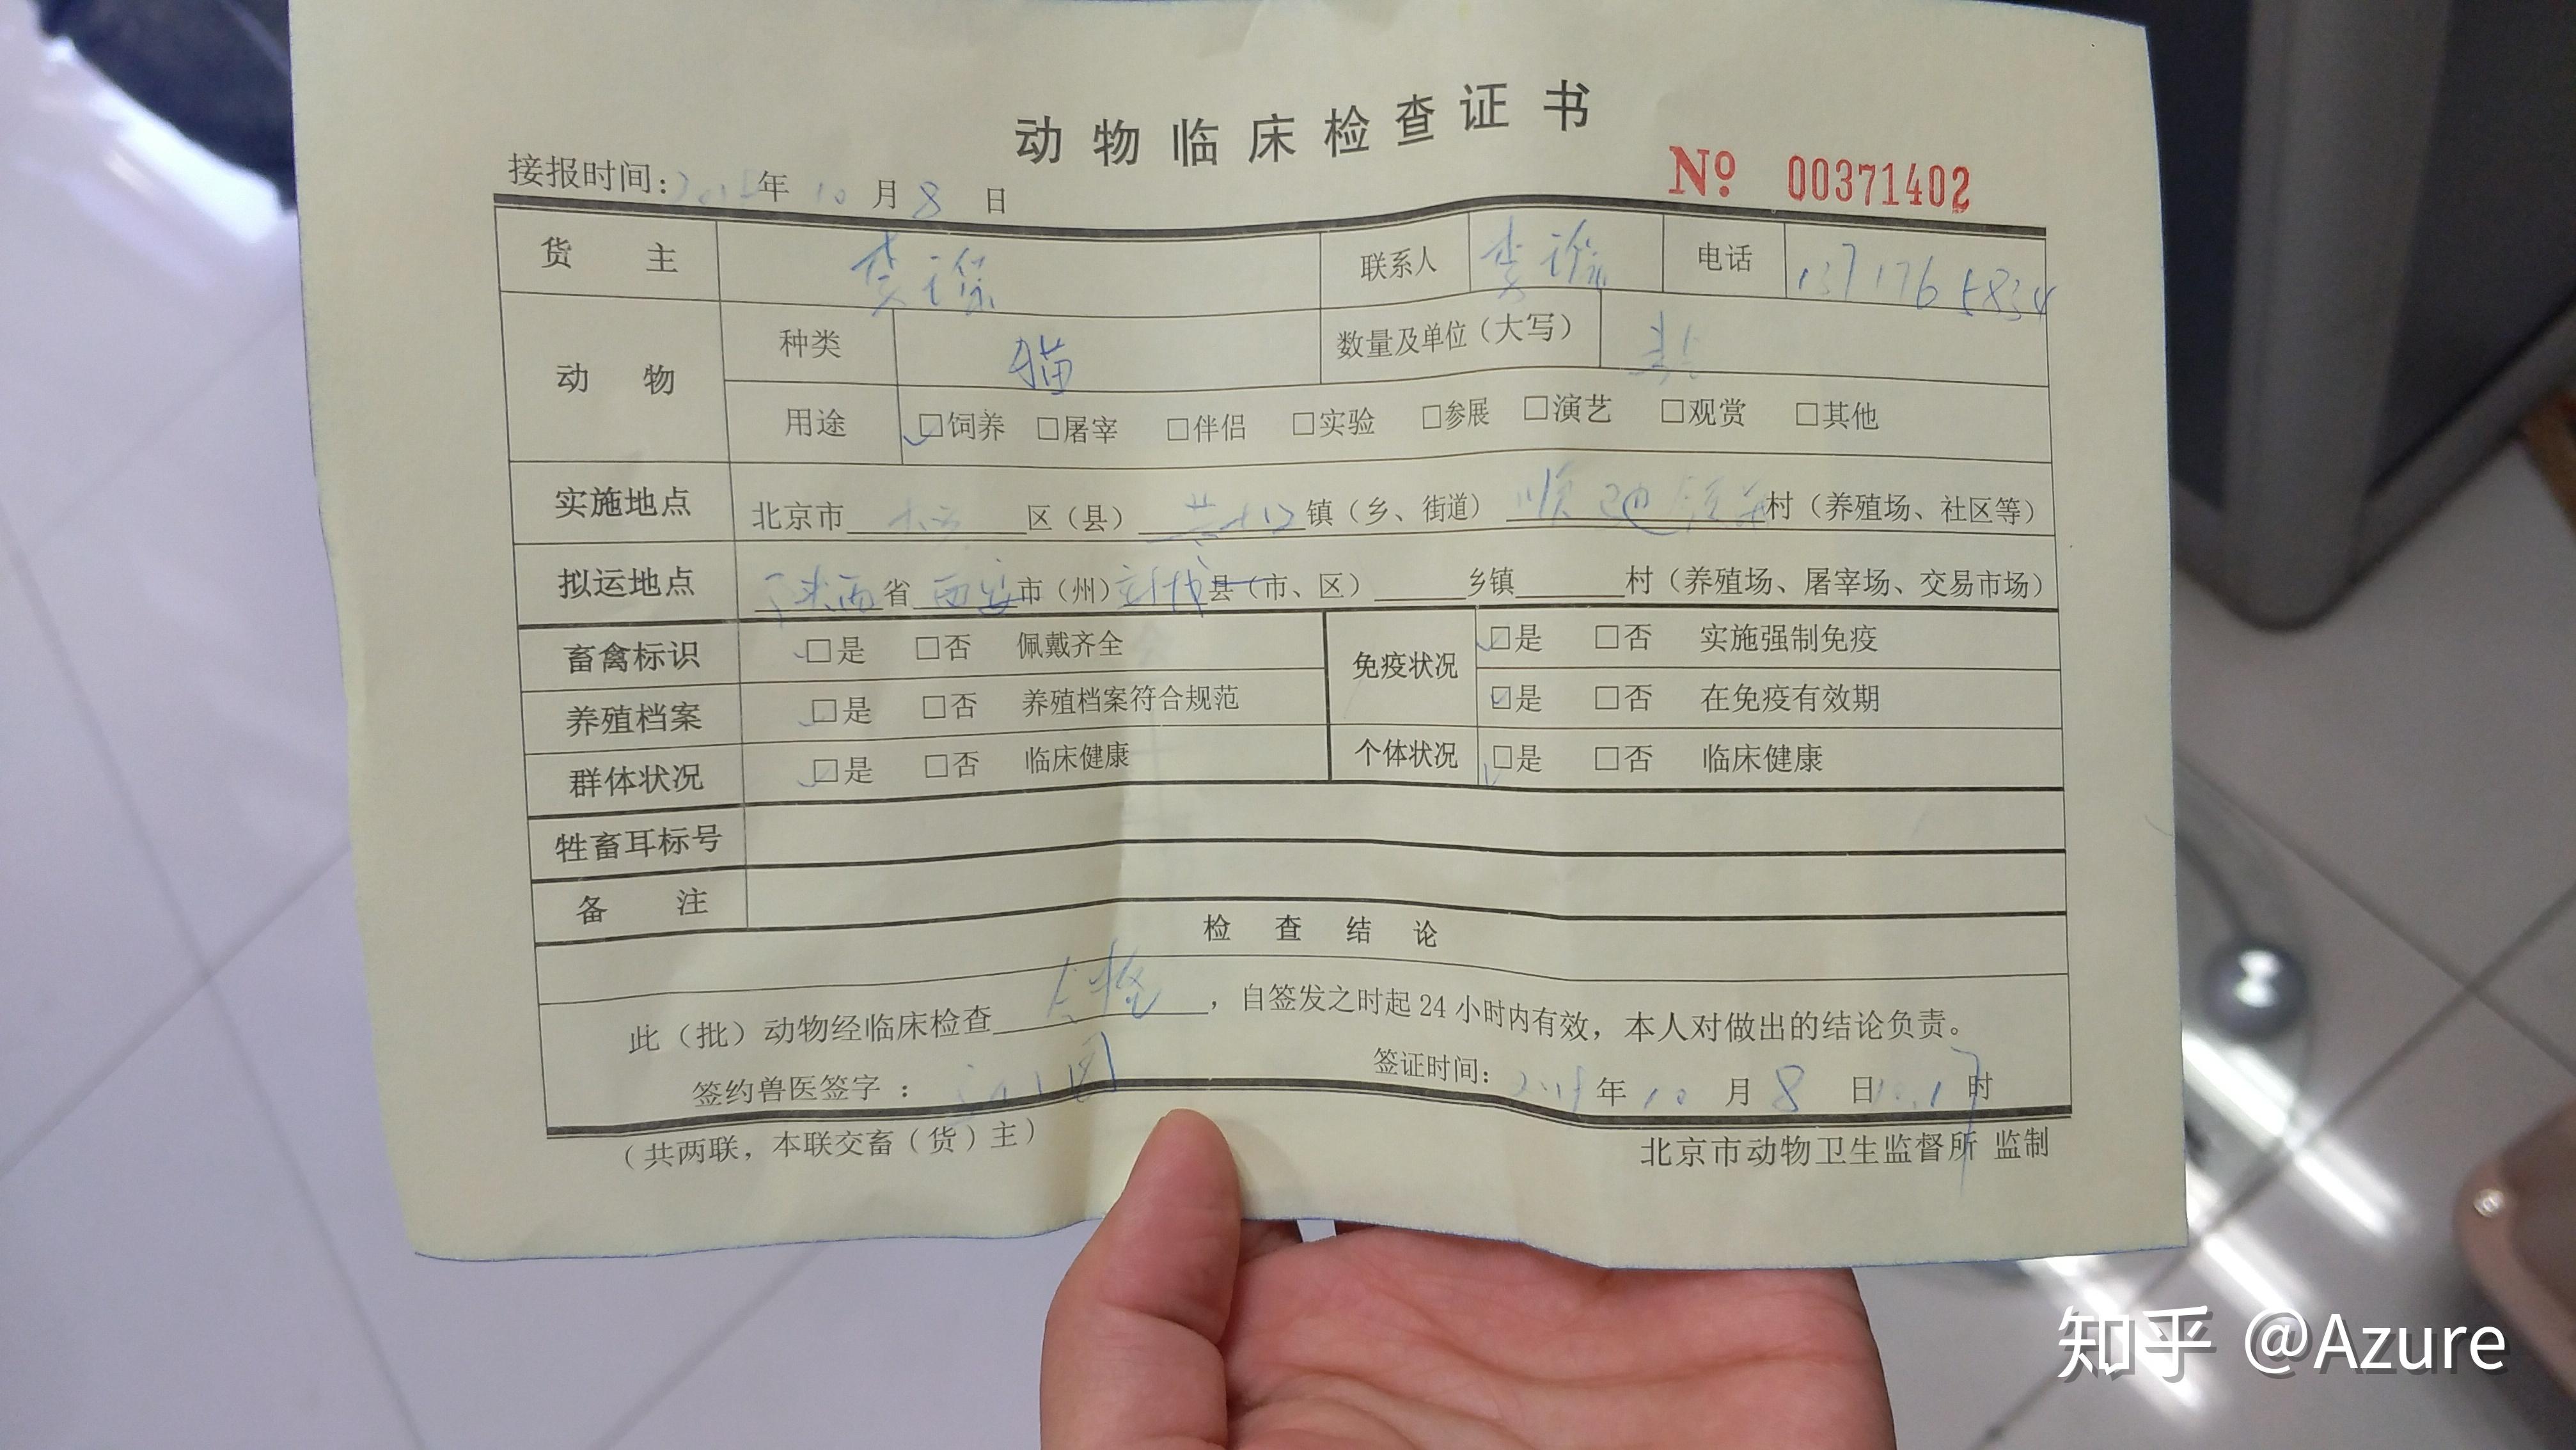 动物临床检查证书
接报时间: 年 10 月 8 日
№ 00371402
货主 李 联系人 李 电话
动物 种类 猫 数量及单位（大写）
用途 □饲养 □屠宰 □伴侣 □实验 □参展 □演艺 □观赏 □其他
实施地点 北京市 区（县） 镇（乡、街道） 村（养殖场、社区等）
拟运地点 陕西省 西安市（州） 县（市、区） 乡镇 村（养殖场、屠宰场、交易市场）
畜禽标识 □是 □否 佩戴齐全 免疫状况 □是 □否 实施强制免疫
养殖档案 □是 □否 养殖档案符合规范 □是 □否 在免疫有效期
群体状况 □是 □否 临床健康 个体状况 □是 □否 临床健康
牲畜耳标号
备注
检查结论
此（批）动物经临床检查 ，自签发之时起24小时内有效，本人对做出的结论负责。
签约兽医签字： 签证时间: 年 10 月 8 日 时
（共两联，本联交畜（货）主） 北京市动物卫生监督所 监制
知乎 @Azure